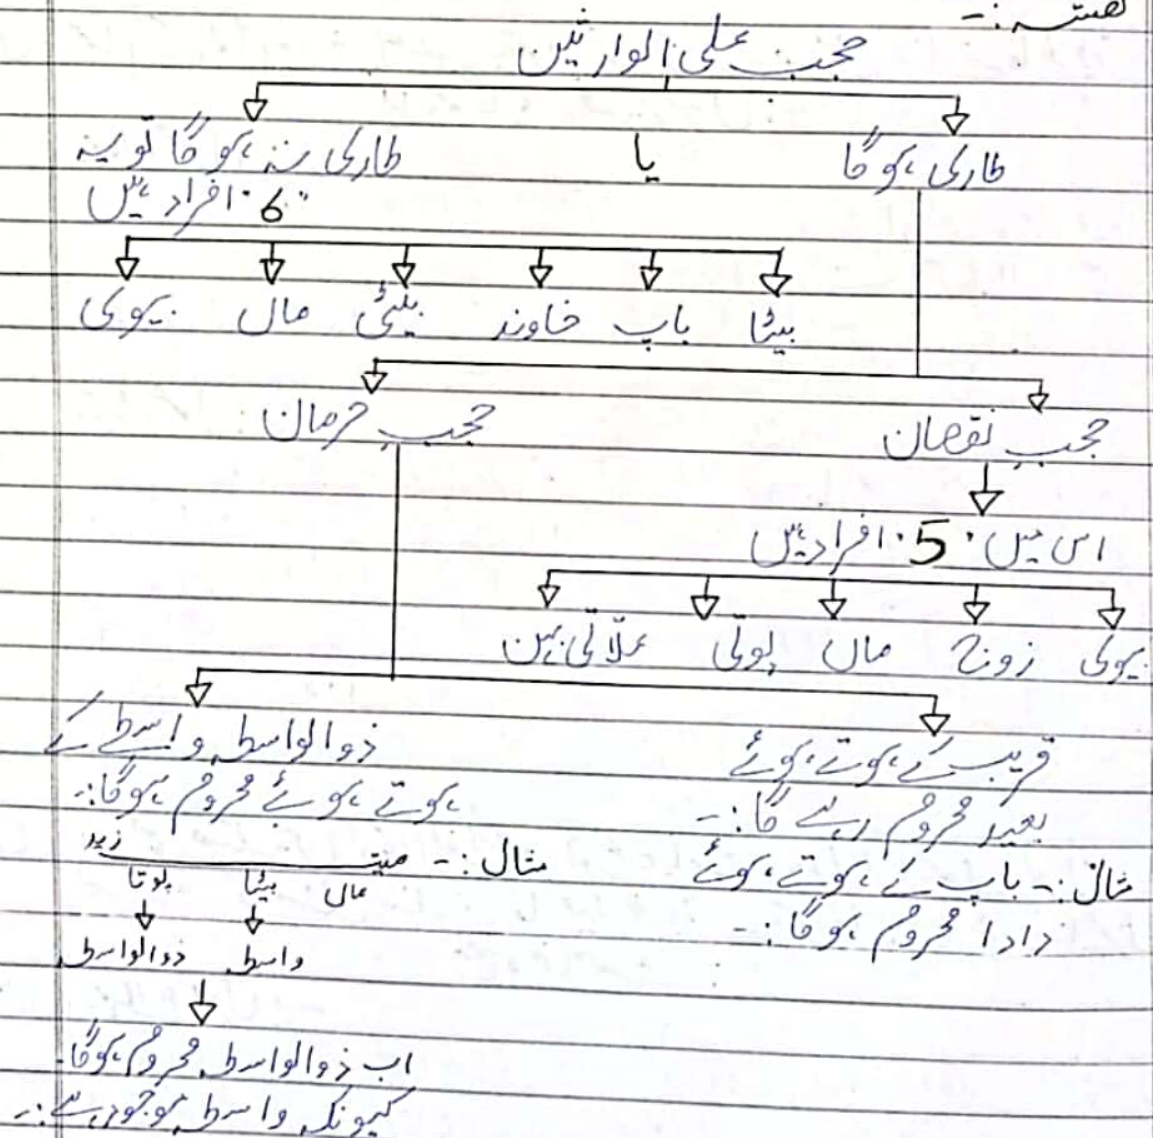 نقشہ :-
حجب علی الوارثین
طاری ہوگا یا طاری نہ ہوگا تو یہ
6 افراد ہیں
بیٹا باپ خاوند بیٹی ماں بیوی
حجب نقصان حجب حرمان
اس میں 5 افراد ہیں
بیوی زوج ماں پوتی علاتی بہن
قریب کے ہوتے ہوئے
بعید محروم رہے گا :-
مثال :- باپ کے ہوتے ہوئے
دادا محروم ہوگا :-
ذوالواسطہ واسطے کے
ہوتے ہوئے محروم ہوگا :-
مثال :- میت زید
ماں بیٹا پوتا
واسطہ ذوالواسطہ
اب ذوالواسطہ محروم ہوگا
کیونکہ واسطہ موجود ہے :-